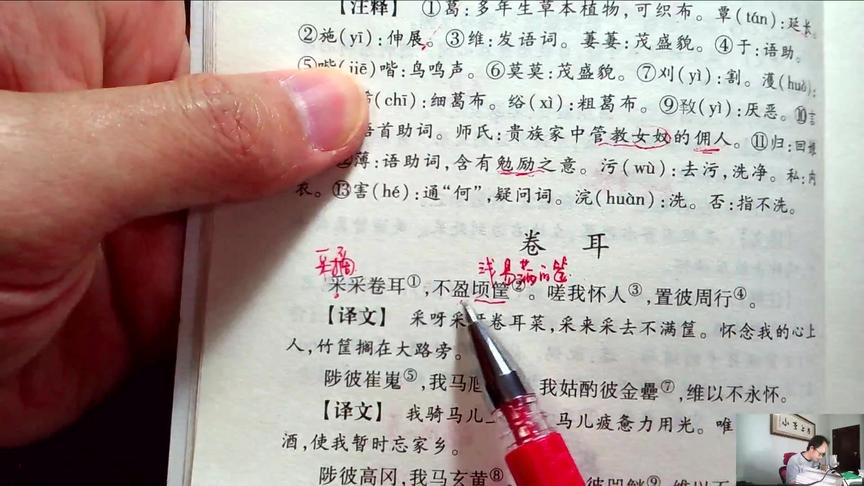 【注释】 ①葛:多年生草本植物,可织布。覃(tán):延长。
②施(yī):伸展。③维:发语词。萋萋:茂盛貌。④于:语助。
⑤喈(jiē)喈:鸟鸣声。⑥莫莫:茂盛貌。⑦刈(yì):割。濩(huò):
(chī):细葛布。绤(xì):粗葛布。⑨斁(yì):厌恶。⑩言
语首助词。师氏:贵族家中管教女奴的佣人。⑪归:回娘
薄:语助词,含有勉励之意。污(wù):去污,洗净。私:内
衣。⑬害(hé):通“何”,疑问词。浣(huàn):洗。否:指不洗。
卷 耳
采摘 浅易满的筐
采采卷耳①,不盈顷筐②。嗟我怀人③,置彼周行④。
【译文】 采呀采 卷耳菜,采来采去不满筐。怀念我的心上
人,竹筐搁在大路旁。
陟彼崔嵬⑤,我马 我姑酌彼金罍⑦,维以不永怀。
【译文】 我骑马儿 马儿疲惫力用光。唯
酒,使我暂时忘家乡。
陟彼高冈,我马玄黄⑧ 彼兕觥⑨,维以不